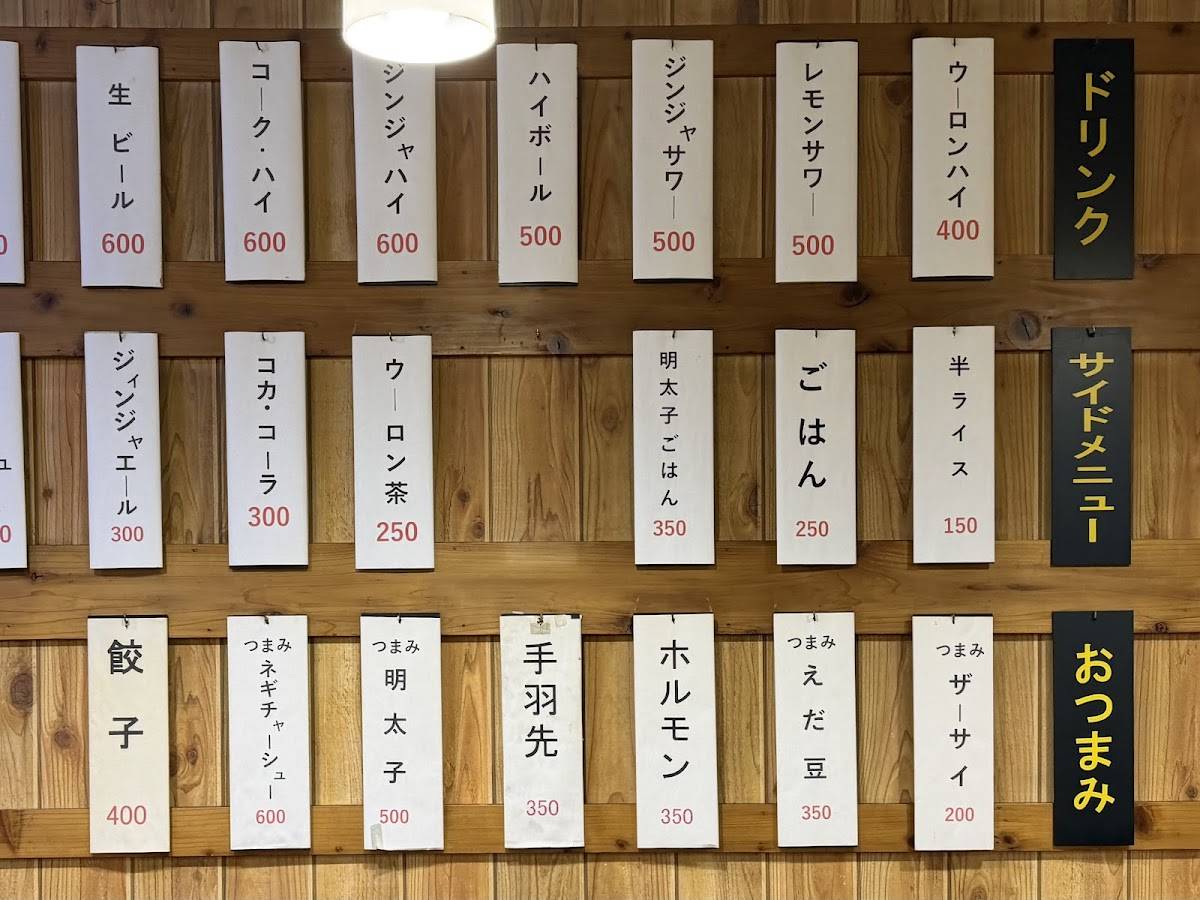 ドリンク
ウーロンハイ
400
レモンサワー
500
ジンジャサワー
500
ハイボール
500
ジンジャハイ
600
コーク・ハイ
600
生ビール
600
0
サイドメニュー
半ライス
150
ごはん
250
明太子ごはん
350
ウーロン茶
250
コカ・コーラ
300
ジィンジャエール
300
ュ
0
おつまみ
つまみ
ザーサイ
200
つまみ
えだ豆
350
ホルモン
350
手羽先
350
つまみ
明太子
500
つまみ
ネギチャーシュー
600
餃子
400